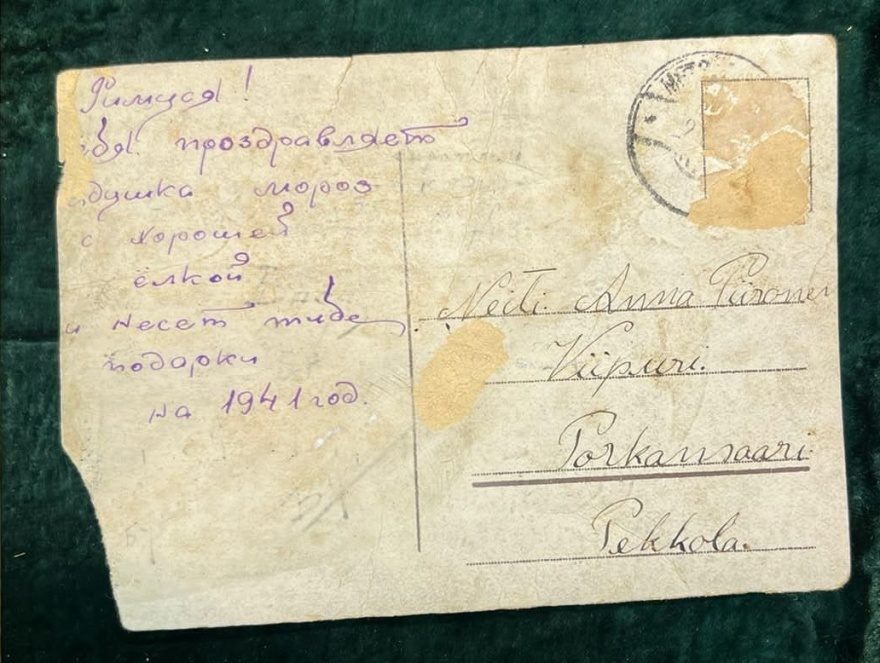 Римцая!
бя проздравляет
душка мороз
с хорошей
ёлкой
и несет тибе
подарки
на 1941 год.
Neiti Anna Piironen
Viipuri.
Porkansaari
Pekkola.